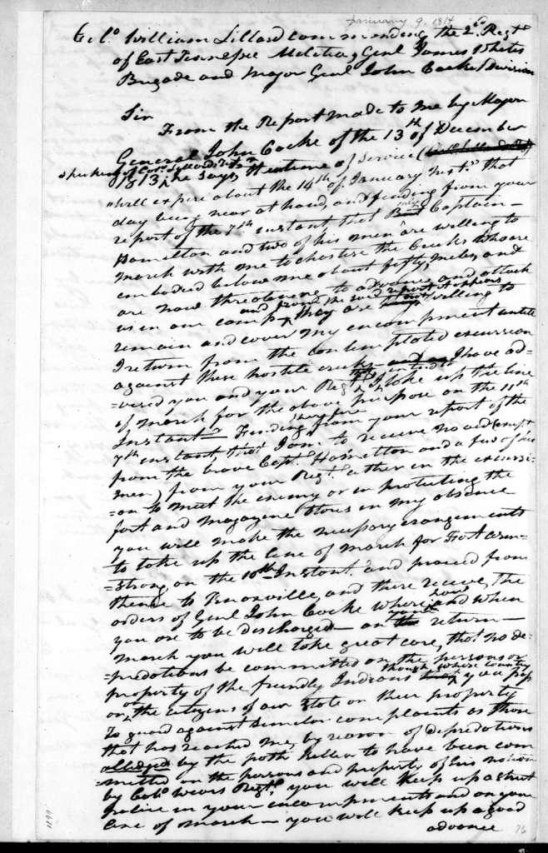 January 9. 1814
Colo. William Lillard commanding the 2d. Regt.
of East Tennessee Militia, Genl James Whites
Brigade and Major Genl John Cocke Division
Sir
From the Report made to me by Major
General John Cocke of the 13th of December
speaking of Colo Lillard
1813, he says the time of service
shall expire about the 14th of January Inst. that
day being near at hand, and finding from your
report of the 7th instant that Captain
Hamilton and two of his men are willing to
march with me to chastise the Creeks who are
embodied below me about fifty miles, and
are now threatening to advance and attack
us in our camp, and from the said report
they are willing to
remain and cover my encampment until
I return from the contemplated excursion
against these hostile creeks I have ad=
=vised you and your Regt. I intended to take up the line
of march for the above purpose on the 11th
Instant— Finding from your report of the
7th instant that I am to receive no aid (except
from the brave Capt. Hamilton and a few of his
men) from your Regt. either in the excursi=
=on to meet the enemy or in protecting the
fort and magazine stores in my absence
you will make the necessary arangements
to take up the line of march for Fort Arm=
=strong on the 10th Instant and proceed from
thence to Knoxville, and there receive, the
orders of Genl John Cocke where and when
you are to be discharged— on return—
march you will take great care, that no de=
=predations be committed on the persons or
property of the friendly Indians though whose country you pass
or, the citizens of our State on their property
To guard against similar complaints as those
that has reached me, by reason of depredations
alledged by the path Killer to have been com
=mitted on the persons and property of his nation
by Colo. Wears Regt. you will keep up a strict
police in your encampments and on your
line of march— you will keep up a good
advance
76